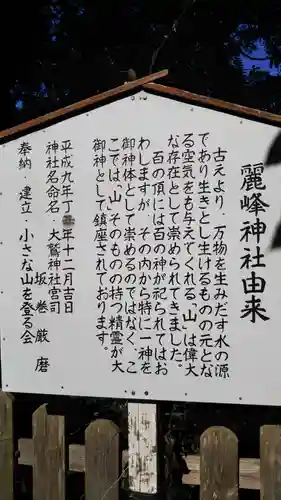 麗峰神社由来
古えより、万物を生みだす水の源
であり生きとし生けるものの元とな
る空気をも与えてくれる、山は偉大
な存在として崇められてきました。
百の頂には百の神が祀られてはお
わしますが、その内から特に一神を
御神体として崇めるのではなく、こ
こでは、山そのものの持つ精霊が大
御神として鎮座されております。
平成九年丁丑年十二月吉日
神社名命名、大鷲神社宮司
坂巻厳磨
奉納 建立、小さな山を登る会